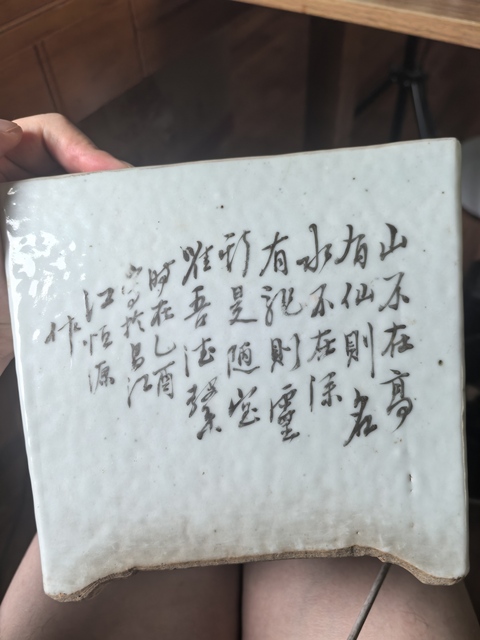 山不在高
有仙則名
水不在深
有龍則靈
斯是陋室
唯吾德馨
时在乙酉
写於昌江
江恒源
作